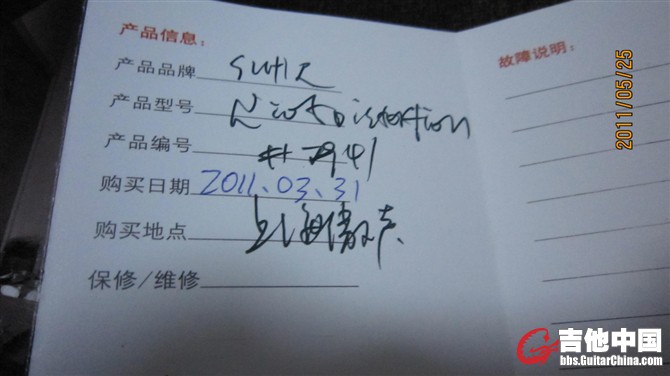 产品信息：
产品品牌 SUHR
产品型号 Riot Distortion
产品编号
购买日期 2011.03.31
购买地点 上海
保修/维修
故障说明：
2011/05/25
吉他中国
bbs.GuitarChina.com